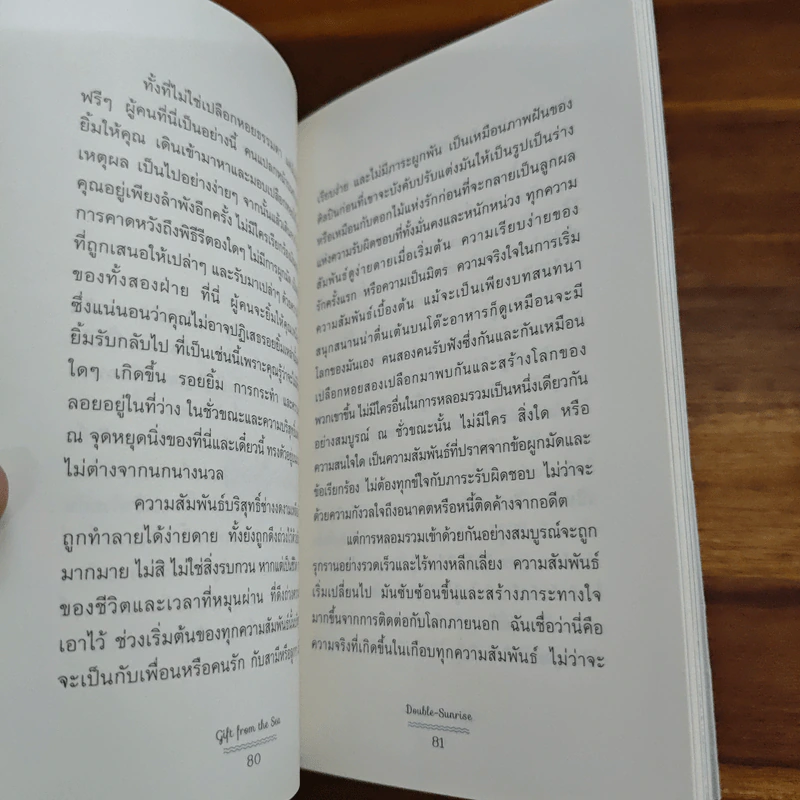 ทั้งที่ไม่ใช่เปลือกหอยธรรมดา
ฟรีๆ ผู้คนที่นี่เป็นอย่างนี้ คนแปลกหน้า
ยิ้มให้คุณ เดินเข้ามาหาและมอบเปลือกหอย
เหตุผล เป็นไปอย่างง่ายๆ จากนั้นแล้วเดิน
คุณอยู่เพียงลำพังอีกครั้ง ไม่มีใครเรียกร้อง
การคาดหวังถึงพิธีรีตองใดๆ ไม่มีการผูกมัด
ที่ถูกเสนอให้เปล่าๆ และรับมาเปล่าๆ ด้วย
ของทั้งสองฝ่าย ที่นี่ ผู้คนจะยิ้มให้คุณ
ซึ่งแน่นอนว่าคุณไม่อาจปฏิเสธรอยยิ้ม
ยิ้มรับกลับไป ที่เป็นเช่นนี้เพราะคุณรู้ว่าจะไม่
ใดๆ เกิดขึ้น รอยยิ้ม การกระทำ และ
ลอยอยู่ในที่ว่าง ในชั่วขณะและความบริสุทธิ์
ณ จุดหยุดนิ่งของที่นี่และเดี๋ยวนี้ ทรงตัวอยู่
ไม่ต่างจากนกนางนวล
ความสัมพันธ์บริสุทธิ์ช่างงดงาม
ถูกทำลายได้ง่ายดาย ทั้งยังถูกดึงถ่วงไว้ด้วย
มากมาย ไม่สิ ไม่ใช่สิ่งรบกวน หากแต่เป็นชีวิต
ของชีวิตและเวลาที่หมุนผ่าน ที่ดึงถ่วง
เอาไว้ ช่วงเริ่มต้นของทุกความสัมพันธ์นั้น
จะเป็นกับเพื่อนหรือคนรัก กับสามีหรือลูก
Gift from the Sea
80
เรียบง่าย และไม่มีภาระผูกพัน เป็นเหมือนภาพฝันของ
ศิลปินก่อนที่เขาจะบังคับปรับแต่งมันให้เป็นรูปเป็นร่าง
หรือเหมือนกับดอกไม้แห่งรักก่อนที่จะกลายเป็นลูกผล
แห่งความรับผิดชอบที่ทั้งมั่นคงและหนักหน่วง ทุกความ
สัมพันธ์ดูง่ายดายเมื่อเริ่มต้น ความเรียบง่ายของ
รักครั้งแรก หรือความเป็นมิตร ความจริงใจในการเริ่ม
ความสัมพันธ์เบื้องต้น แม้จะเป็นเพียงบทสนทนา
สนุกสนานน่าตื่นเต้นบนโต๊ะอาหารก็ดูเหมือนจะมี
โลกของมันเอง คนสองคนรับฟังซึ่งกันและกันเหมือน
เปลือกหอยสองเปลือกมาพบกันและสร้างโลกของ
พวกเขาขึ้น ไม่มีใครอื่นในการหลอมรวมเป็นหนึ่งเดียวกัน
อย่างสมบูรณ์ ณ ชั่วขณะนั้น ไม่มีใคร สิ่งใด หรือ
ความสนใจใด เป็นความสัมพันธ์ที่ปราศจากข้อผูกมัดและ
ข้อเรียกร้อง ไม่ต้องทุกข์ใจกับภาระรับผิดชอบ ไม่ว่าจะ
ด้วยความกังวลใจถึงอนาคตหรือหนี้ติดค้างจากอดีต
แต่การหลอมรวมเข้าด้วยกันอย่างสมบูรณ์จะถูก
รุกรานอย่างรวดเร็วและไร้ทางหลีกเลี่ยง ความสัมพันธ์
เริ่มเปลี่ยนไป มันซับซ้อนขึ้นและสร้างภาระทางใจ
มากขึ้นจากการติดต่อกับโลกภายนอก ฉันเชื่อว่านี่คือ
ความจริงที่เกิดขึ้นในเกือบทุกความสัมพันธ์ ไม่ว่าจะ
Double-Sunrise
81